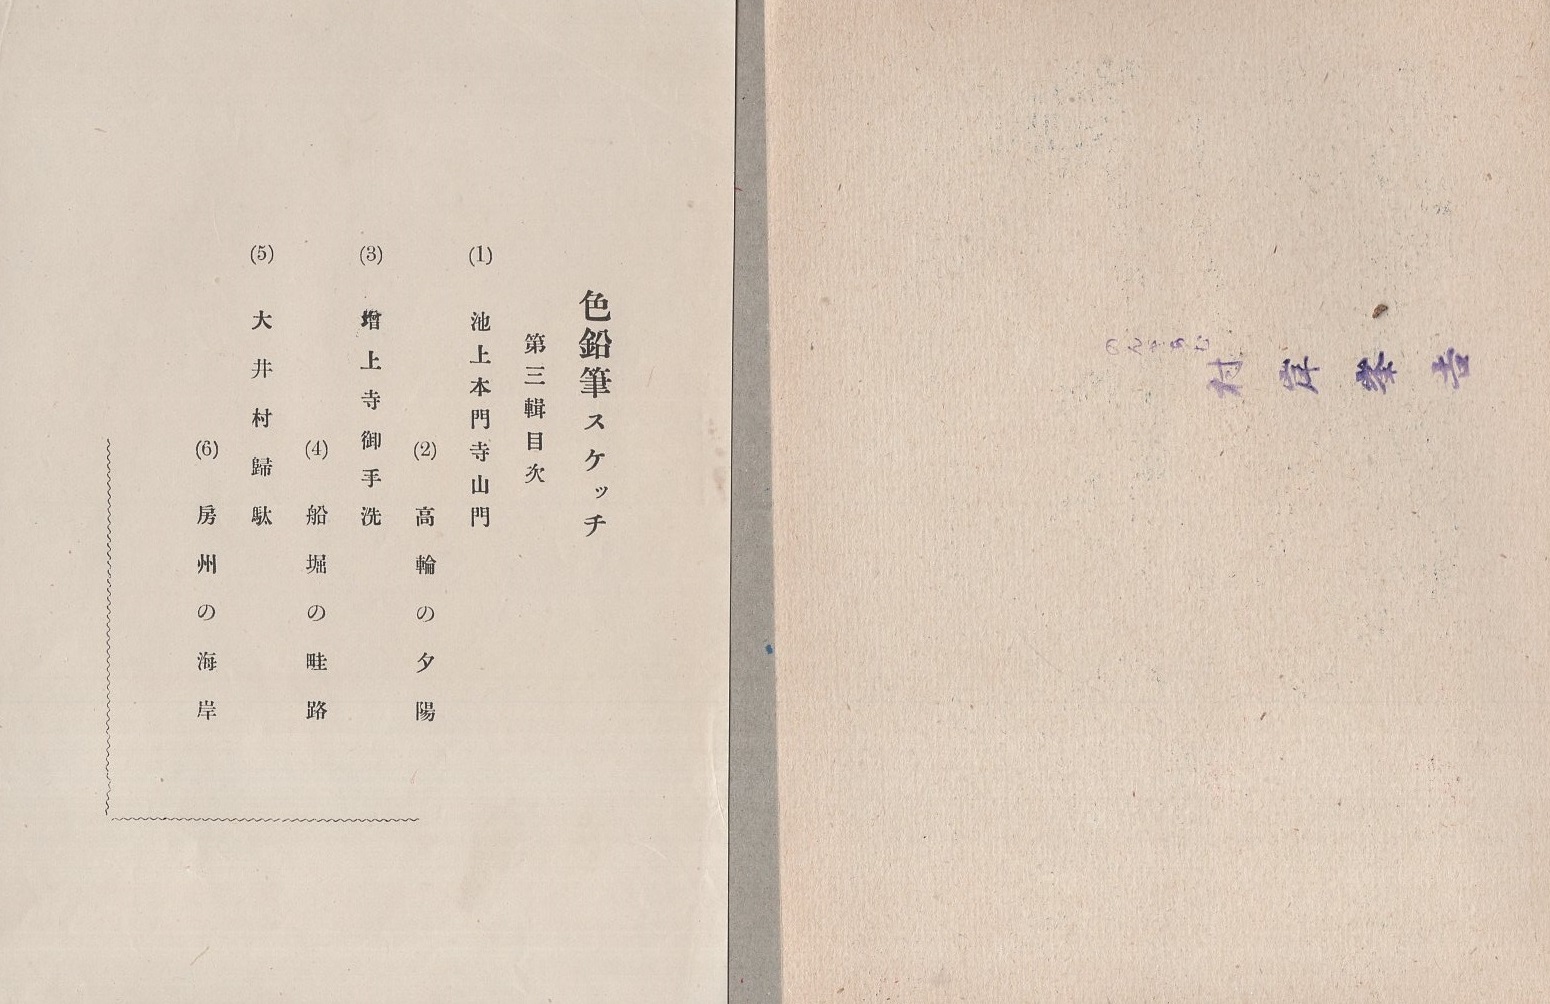 色鉛筆スケッチ
第三輯目次
(1) 池上本門寺山門
(2) 高輪の夕陽
(3) 增上寺御手洗
(4) 船堀の畦路
(5) 大井村歸駄
(6) 房州の海岸